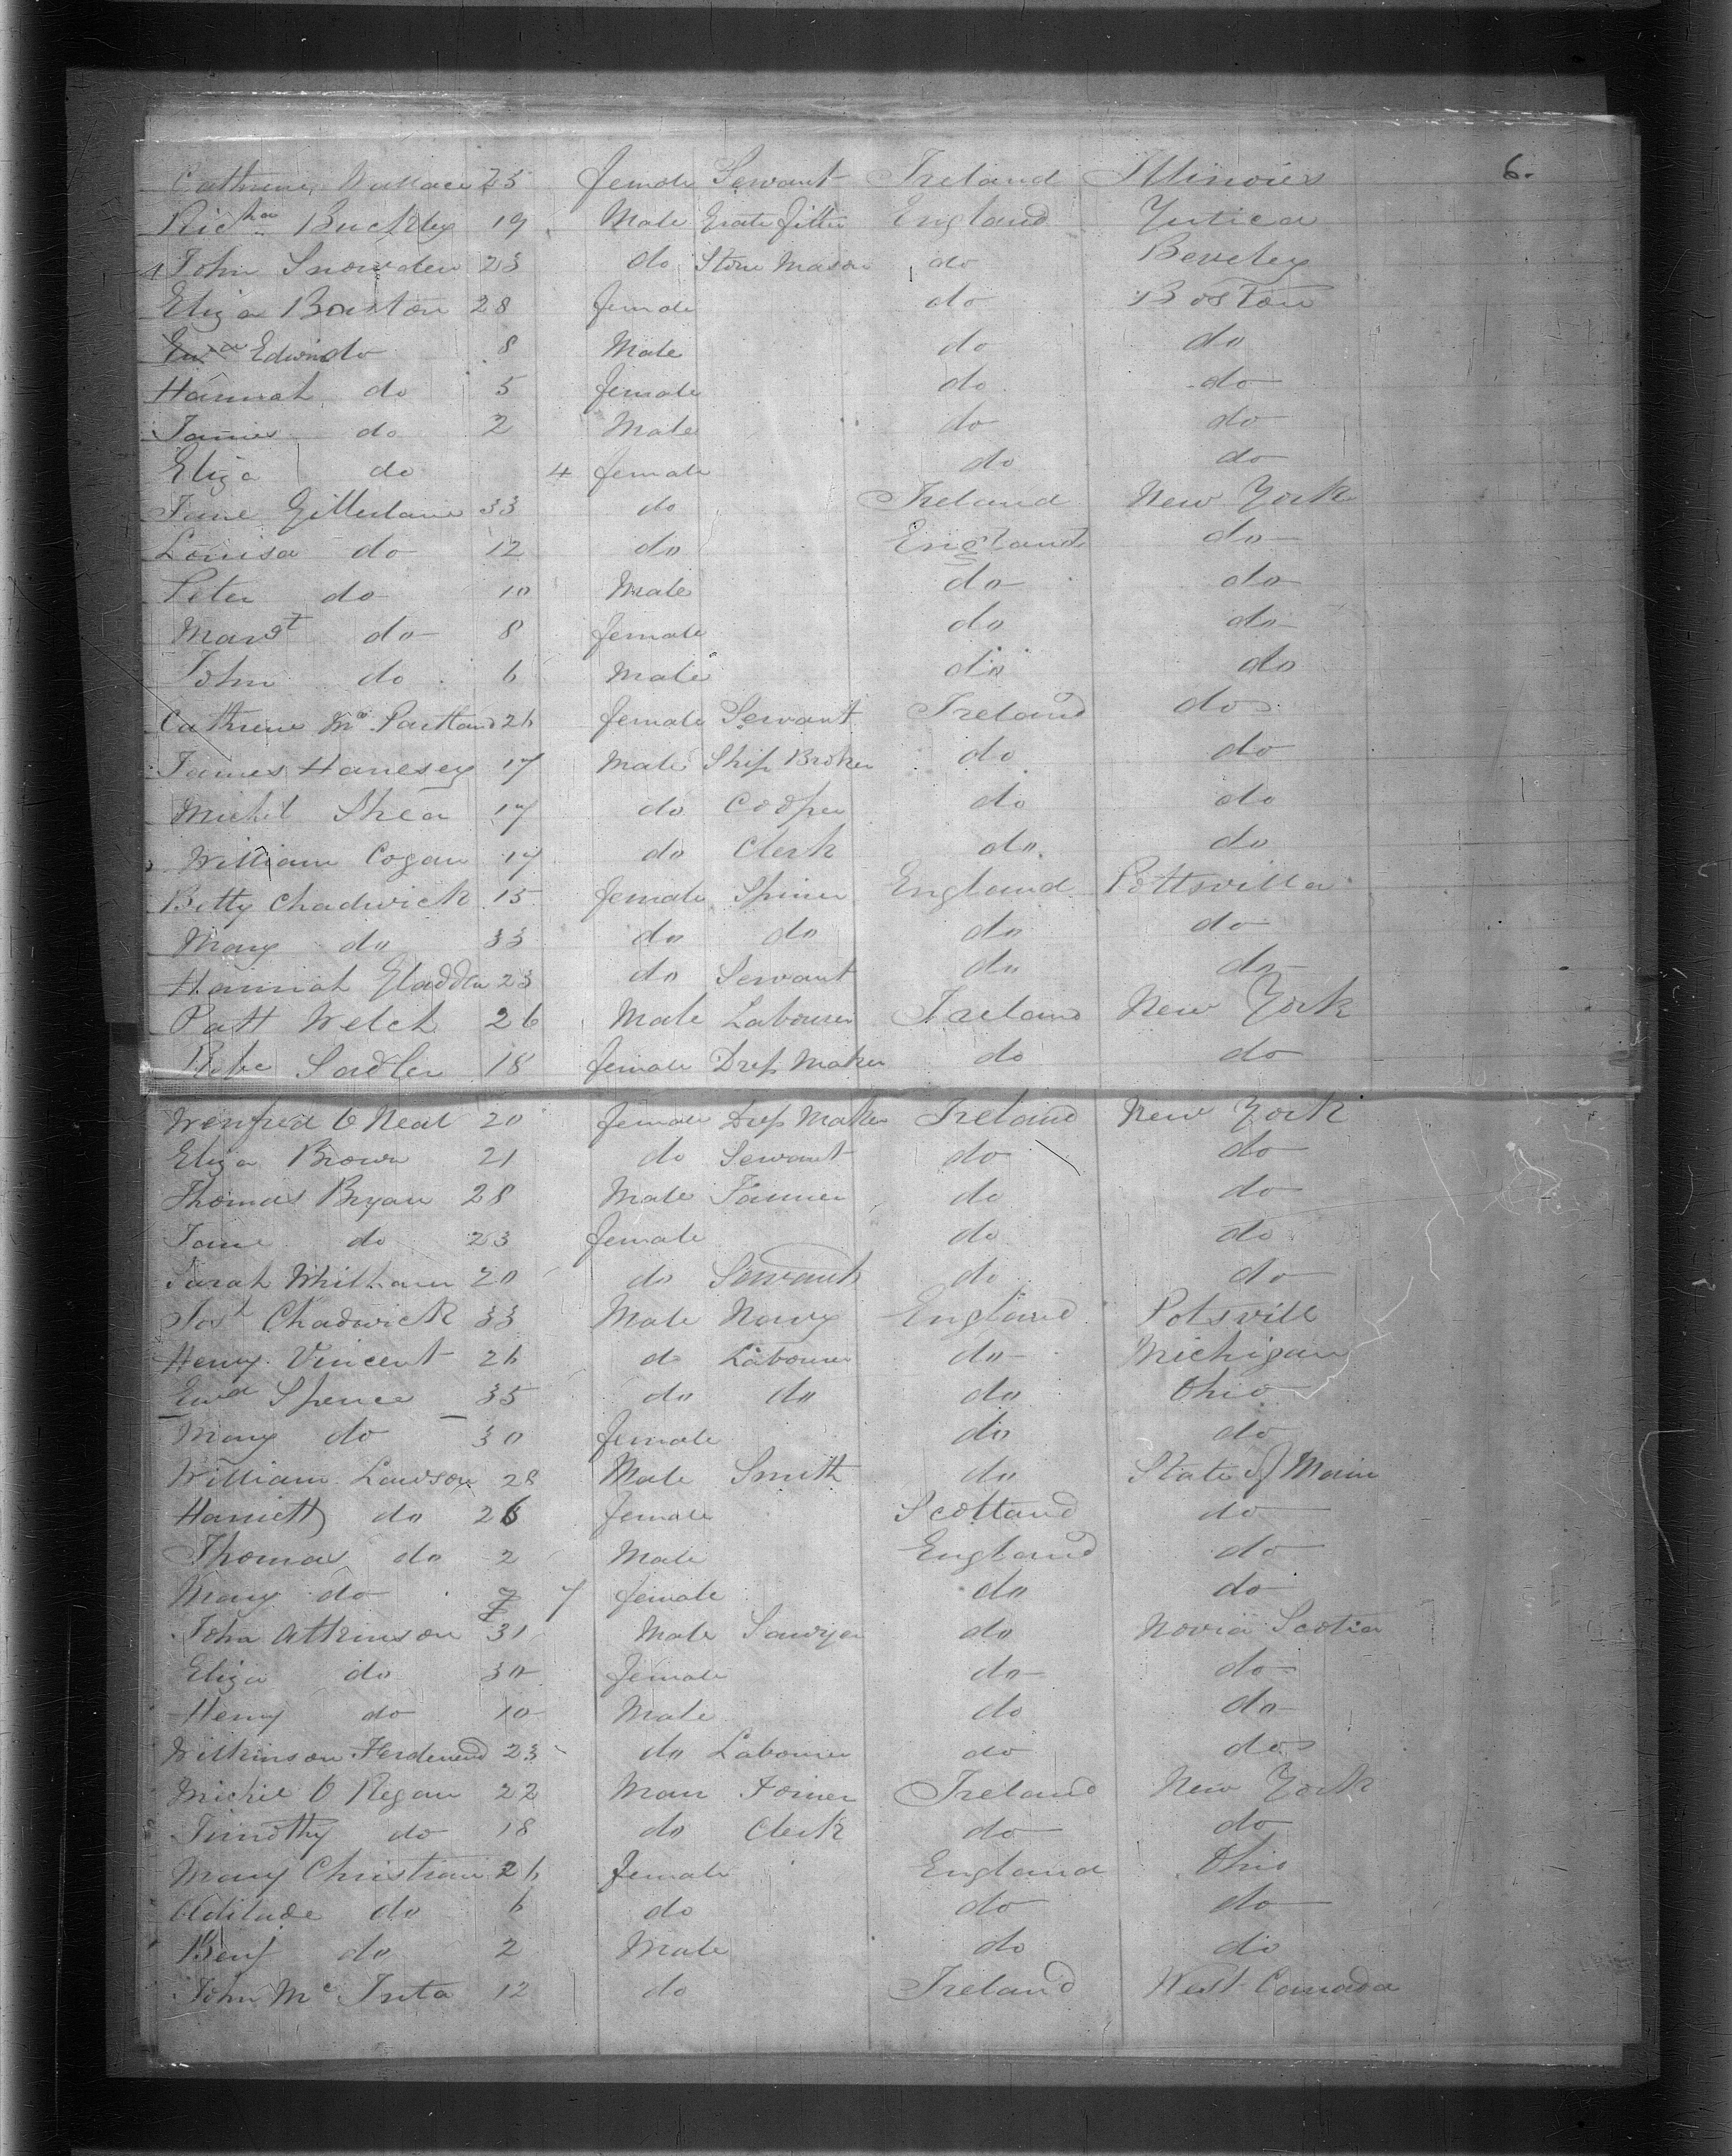 6.
Cathrine Wallace 25 female Servant Ireland Illinoies
Richd Buckley 19 Male Grate fitter England Yutica
John Snowden 23 do Stone Mason do Beverley
Eliza Boaston 28 female do Boston
Edwin do 8 Male do do
Hannah do 5 female do do
James do 2 Male do do
Eliza do 4 female do do
Jane 33 do Ireland New York
Louisa do 12 do England do
Peter do 10 Male do do
Margt do 8 female do do
John do 6 Male do do
Cathrine Mc Partland 26 female Servant Ireland do
James Hanesey 17 Male Ship Broker do do
Michel Shea 17 do Cooper do do
William Cogan 17 do Clerk do do
Betty Chadwick 15 female Spiner England Pottsvilla
Mary do 33 do do do do
Hannah Gladden 23 do Servant do do
Patt Welch 26 Male Labourer Ireland New York
Rebe Sadler 18 female Dress Maker do do
Wenfred O Neal 20 female Dress Maker Ireland New York
Eliza Brown 21 do Servant do do
Thomas Bryan 28 Male do do
Jane do 23 female do do
Sarah 20 do Servant do do
Josh Chadwick 33 Male Navy England Potsvill
Henry Vincent 26 do Labourer do Michigan
Ewd Spence 35 do do do Ohio
Mary do 30 female do do
William Lawson 28 Male Smith do State of Main
Harriett do 26 female Scotland do
Thomas do 2 Male England do
Mary do 7 female do do
John Atkinson 31 Male Sawyer do Novia Scotia
Eliza do 30 female do do
Henry do 10 Male do do
Wilkinson Ferdenend 23 do Labourer do do
Michil O Regan 22 Man Joiner Ireland New York
Timothy do 18 do Clerk do do
Mary Christian 26 female England Ohio
do 6 do do do
Benj do 2 Male do do
John Mc 12 do Ireland West Canada